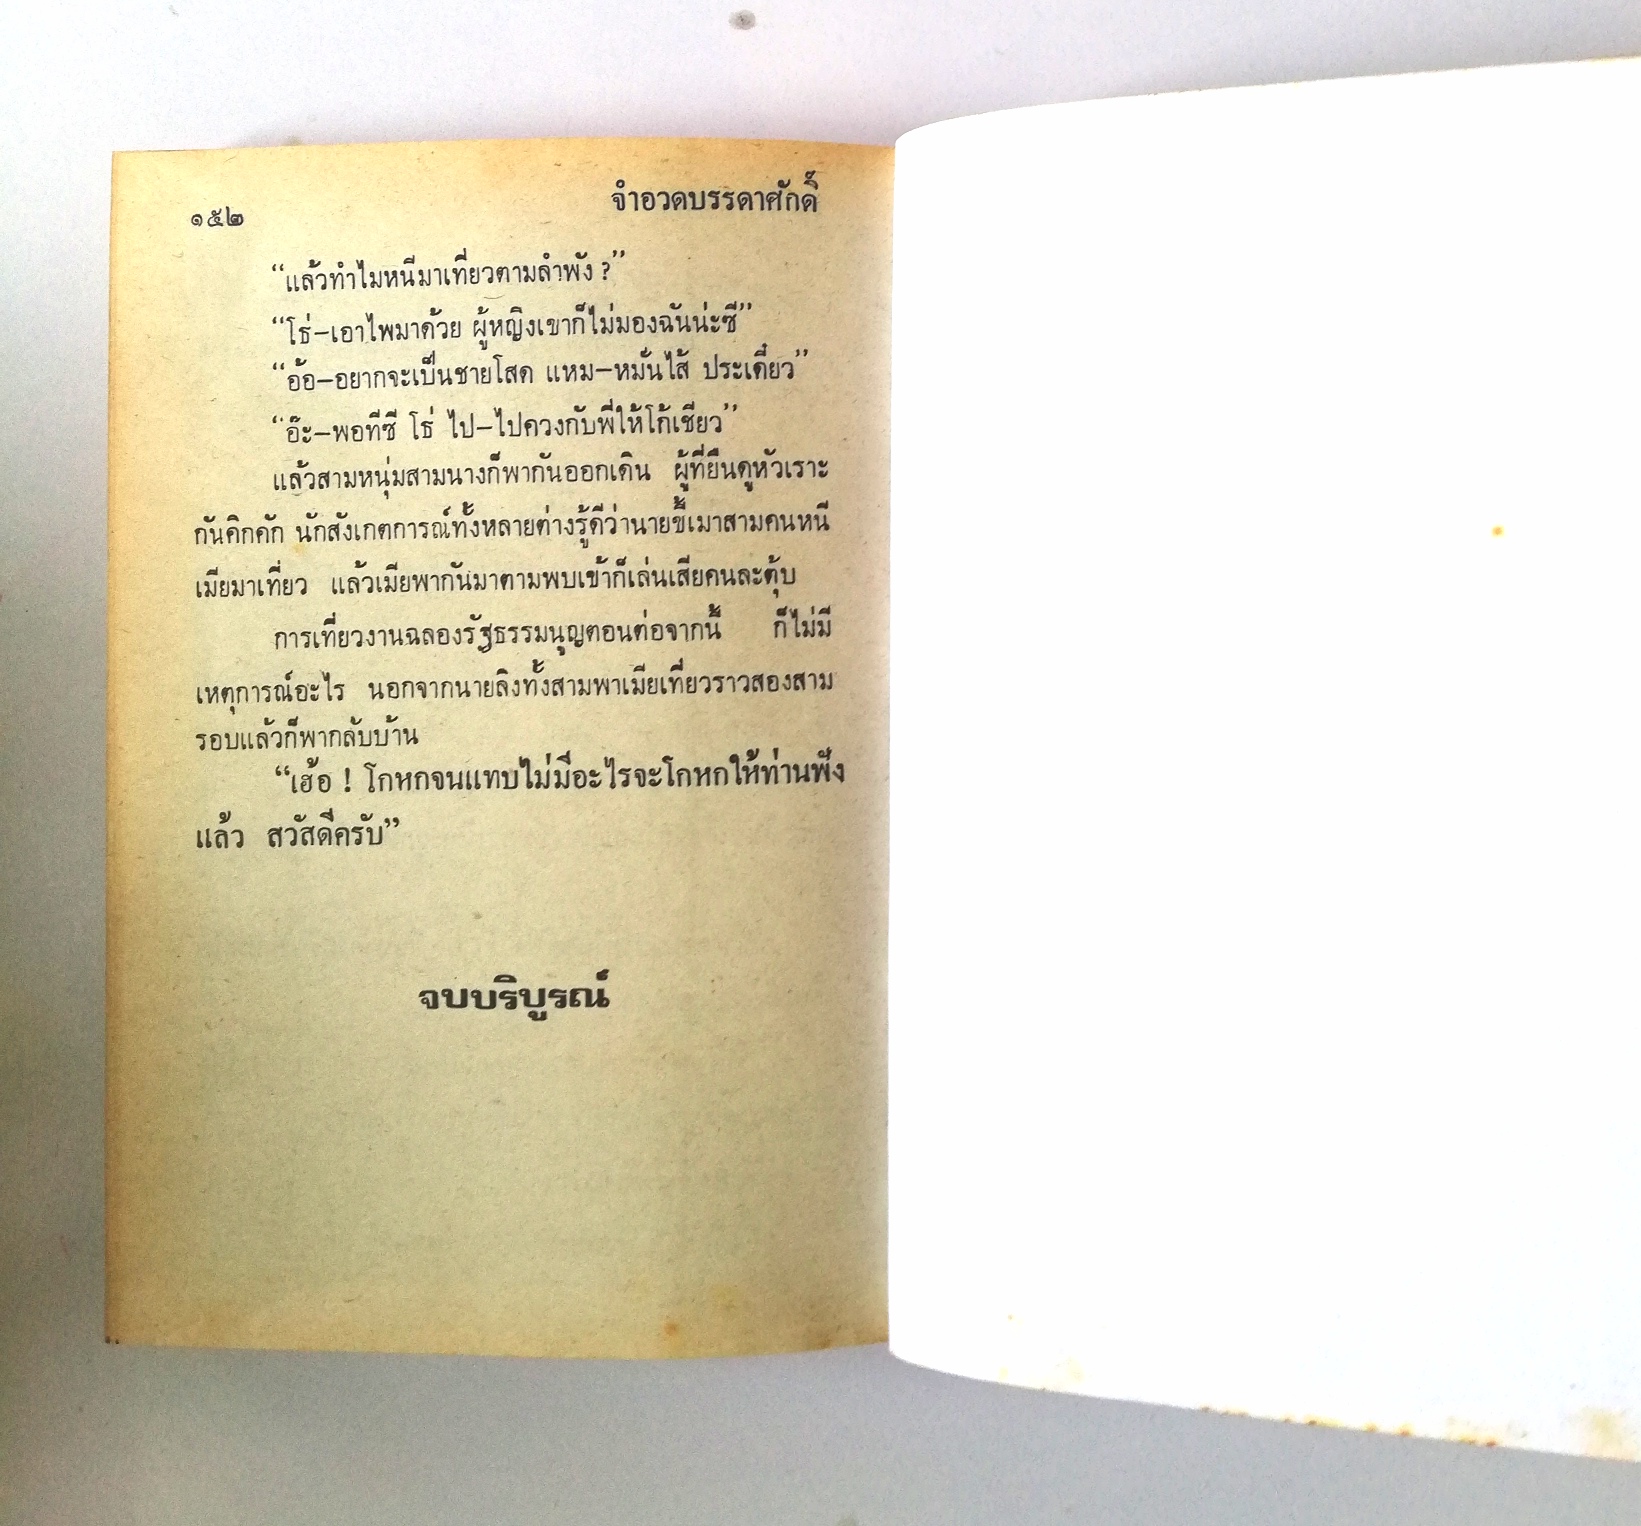 ๑๕๒
จำอวดบรรดาศักดิ์
“แล้วทำไมหนีมาเที่ยวตามลำพัง ?”
“โธ่–เอาไพมาด้วย ผู้หญิงเขาก็ไม่มองฉันน่ะซี”
“อ้อ–อยากจะเป็นชายโสด แหม–หมั่นไส้ ประเดี๋ยว”
“อ๊ะ–พอทีซี โธ่ ไป–ไปควงกับพี่ให้โก้เชียว”
แล้วสามหนุ่มสามนางก็พากันออกเดิน ผู้ที่ยืนดูหัวเราะ
กันคิกคัก นักสังเกตการณ์ทั้งหลายต่างรู้ดีว่านายขี้เมาสามคนหนี
เมียมาเที่ยว แล้วเมียพากันมาตามพบเข้าก็เล่นเสียคนละตุ้บ
การเที่ยวงานฉลองรัฐธรรมนูญตอนต่อจากนี้ ก็ไม่มี
เหตุการณ์อะไร นอกจากนายลิงทั้งสามพาเมียเที่ยวราวสองสาม
รอบแล้วก็พากลับบ้าน
“เฮ้อ ! โกหกจนแทบไม่มีอะไรจะโกหกให้ท่านฟัง
แล้ว สวัสดีครับ”
จบบริบูรณ์